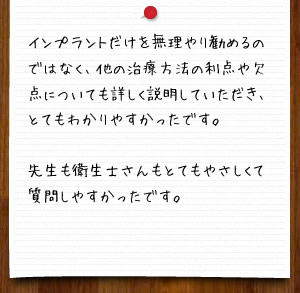 インプラントだけを無理やり勧めるの
ではなく、他の治療方法の利点や欠
点についても詳しく説明していただき、
とてもわかりやすかったです。
先生も衛生士さんもとてもやさしくて
質問しやすかったです。